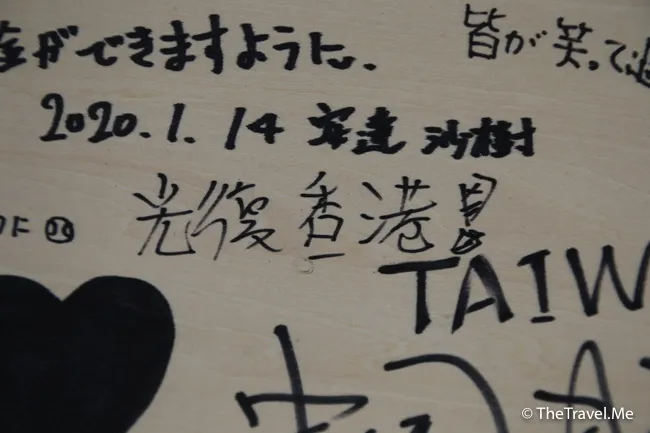 ができますように。
皆が笑って
2020.1.14 安達 沙樹
光復香港
に
TAIW
© TheTravel.Me